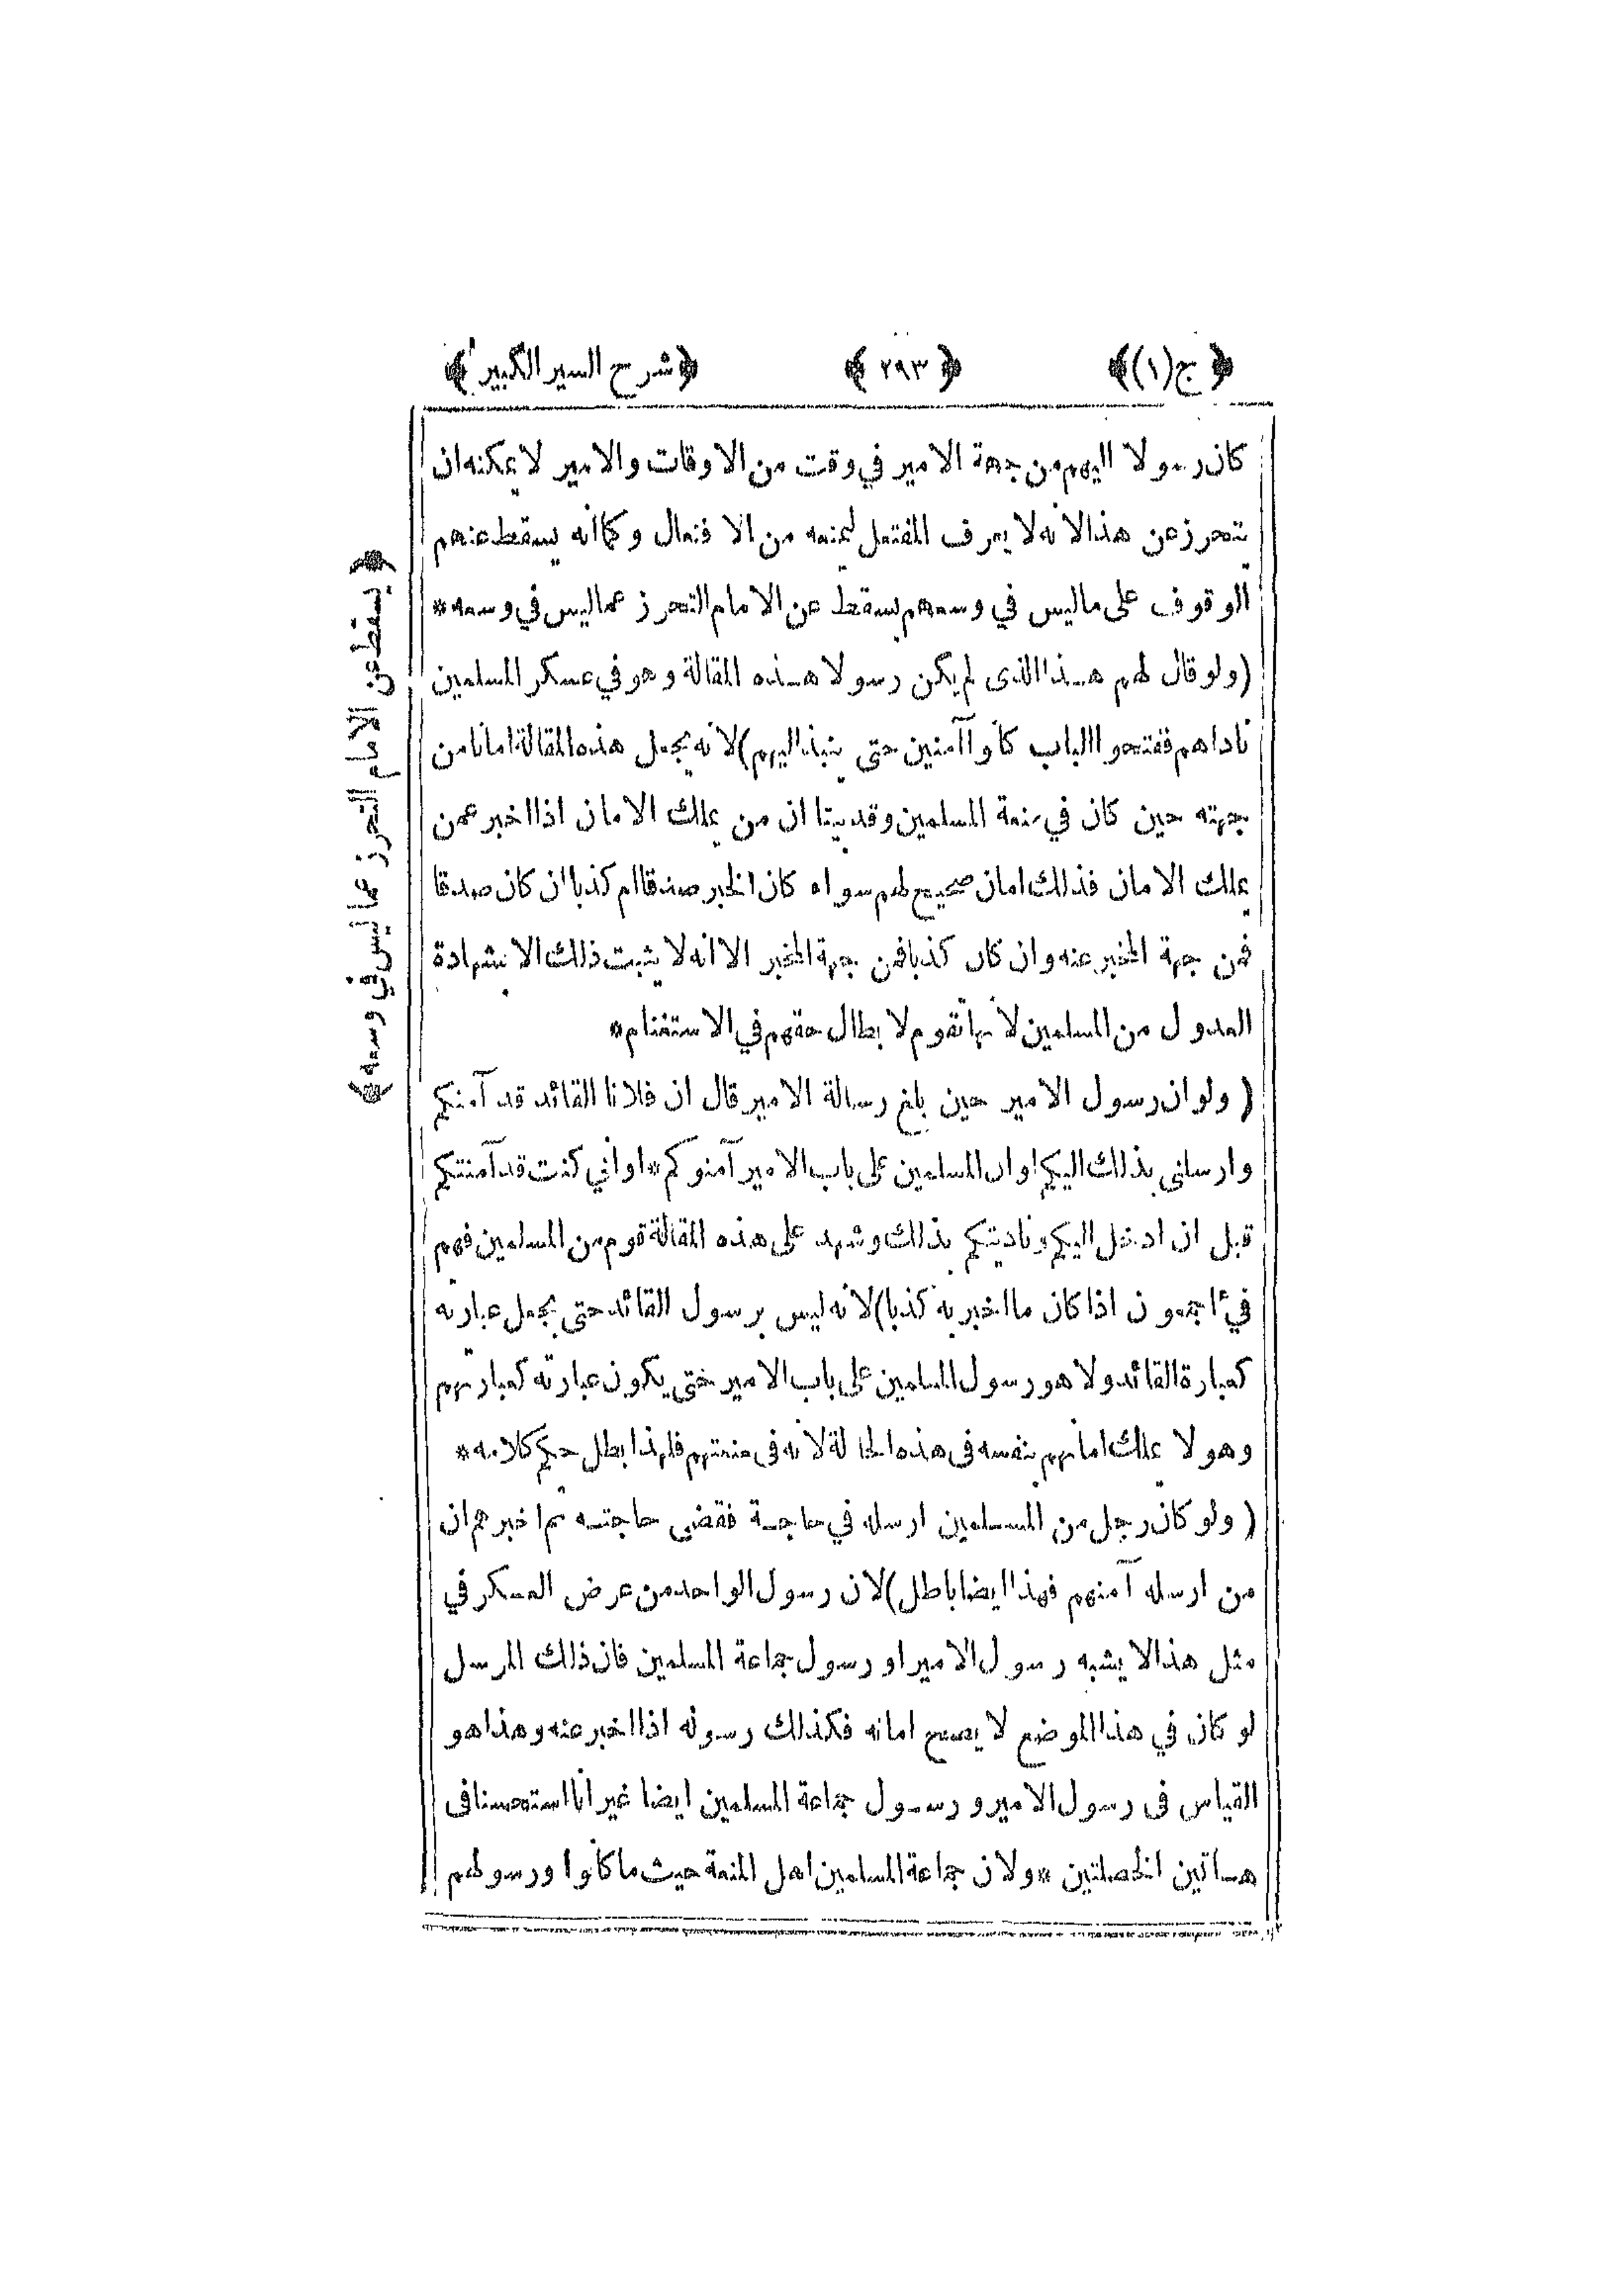 ﴿ج(١)﴾ ﴿٢٩٣﴾ ﴿شرح السير الكبير﴾
كان رسولا اليهم من جهة الامير في وقت من الاوقات والامير لا يمكنه ان
يتحرز عن هذا لانه لا يعرف المفتعل ليمنعه من الافتعال وكما انه يسقط عنهم
الوقوف على ما ليس في وسعهم يسقط عن الامام التحرز عما ليس في وسعه*
(ولو قال لهم هذا الذى لم يكن رسولا هذه المقالة وهو في عسكر المسلمين
ناداهم ففتحوا الباب كانوا آمنين حتى ينبذ اليهم) لانه يجعل هذه المقالة امانا من
جهته حين كان في منعة المسلمين وقد بينا ان من يملك الامان اذا اخبر عمن
يملك الامان فذلك امان صحيح لهم سواء كان الخبر صدقا ام كذبا ان كان صدقا
فمن جهة المخبر عنه وان كان كذبا فمن جهة المخبر الا انه لا يثبت ذلك الا بشهادة
العدول من المسلمين لانها تقوم لابطال حقهم في الاستغنام*
(ولو ان رسول الامير حين بلغ رسالة الامير قال ان فلانا القائد قد آمنكم
وارسلنى بذلك اليكم او ان المسلمين على باب الامير آمنوكم* او اني كنت قد آمنتكم
قبل ان ادخل اليكم وناديتكم بذلك وشهد على هذه المقالة قوم من المسلمين فهم
فيء اجمعون اذا كان ما اخبر به كذبا) لانه ليس برسول القائد حتى يجعل عبارته
كعبارة القائد ولا هو رسول المسلمين على باب الامير حتى يكون عبارته كعبارتهم
وهو لا يملك امانهم بنفسه فى هذه الحالة لانه فى منعتهم فلهذا بطل حكم كلامه*
(ولو كان رجل من المسلمين ارسله في حاجة فقضى حاجته ثم اخبرهم ان
من ارسله آمنهم فهذا ايضا باطل) لان رسول الواحد من عرض العسكر في
مثل هذا لا يشبه رسول الامير او رسول جماعة المسلمين فان ذلك المرسل
لو كان في هذا الموضع لا يصح امانه فكذلك رسوله اذا اخبر عنه وهذا هو
القياس فى رسول الامير ورسول جماعة المسلمين ايضا غير انا استحسنا فى
هاتين الخصلتين* ولان جماعة المسلمين اهل المنعة حيث ما كانوا ورسولهم
﴿يسقط عن الامام التحرز عما ليس في وسعه﴾